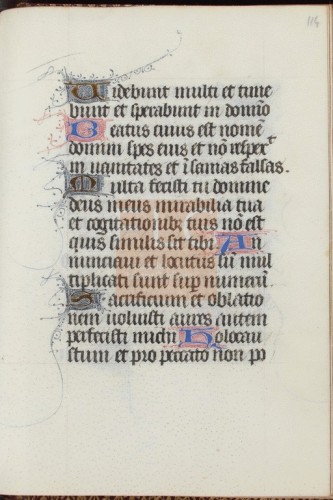 116
Videbunt multi et time
bunt et sperabunt in domino
Beatus cuius est nomē
domini spes eius et nō respexᵗ
in vanitates et ī sanias falsas.
Multa fecisti tu domine
deus meus mirabilia tua
et cogitationibꝫ tuis nō est
quis similis sit tibi An
nunciavi et locutus sū mul
tiplicati sunt sup numerū.
Sacrificium et oblatio
nem noluisti aures autem
perfecisti michi Holocau
stum et pro peccato non po